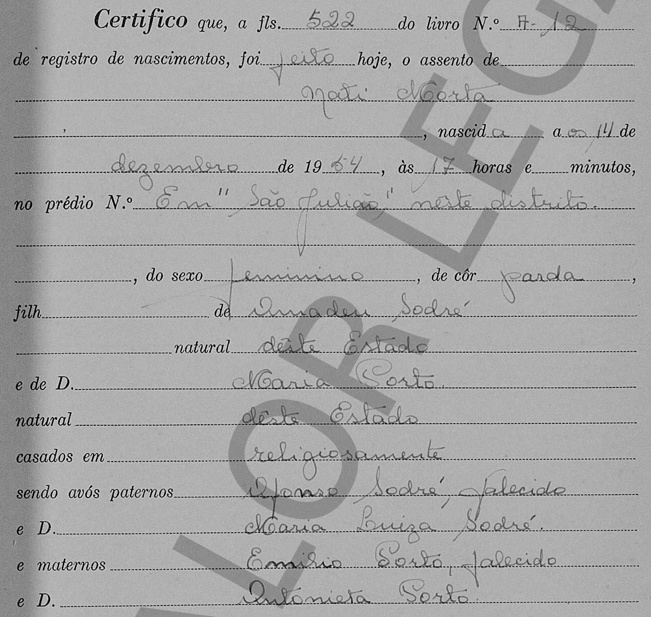 Certifico que, a fls. 522 do livro N.º A-12
de registro de nascimentos, foi feito hoje, o assento de
Nati Morta
, nascida aos 14 de
dezembro de 1964, às 17 horas e minutos,
no prédio N.º Em "São Julião," neste distrito.
, do sexo feminino, de côr parda,
filh de Amadeu Sodré
natural dêste Estado
e de D. Maria Porto.
natural dêste Estado
casados em religiosamente
sendo avós paternos Afonso Sodré, falecido
e D. Maria Luiza Sodré.
e maternos Emilio Porto, falecido
e D. Antonieta Porto.